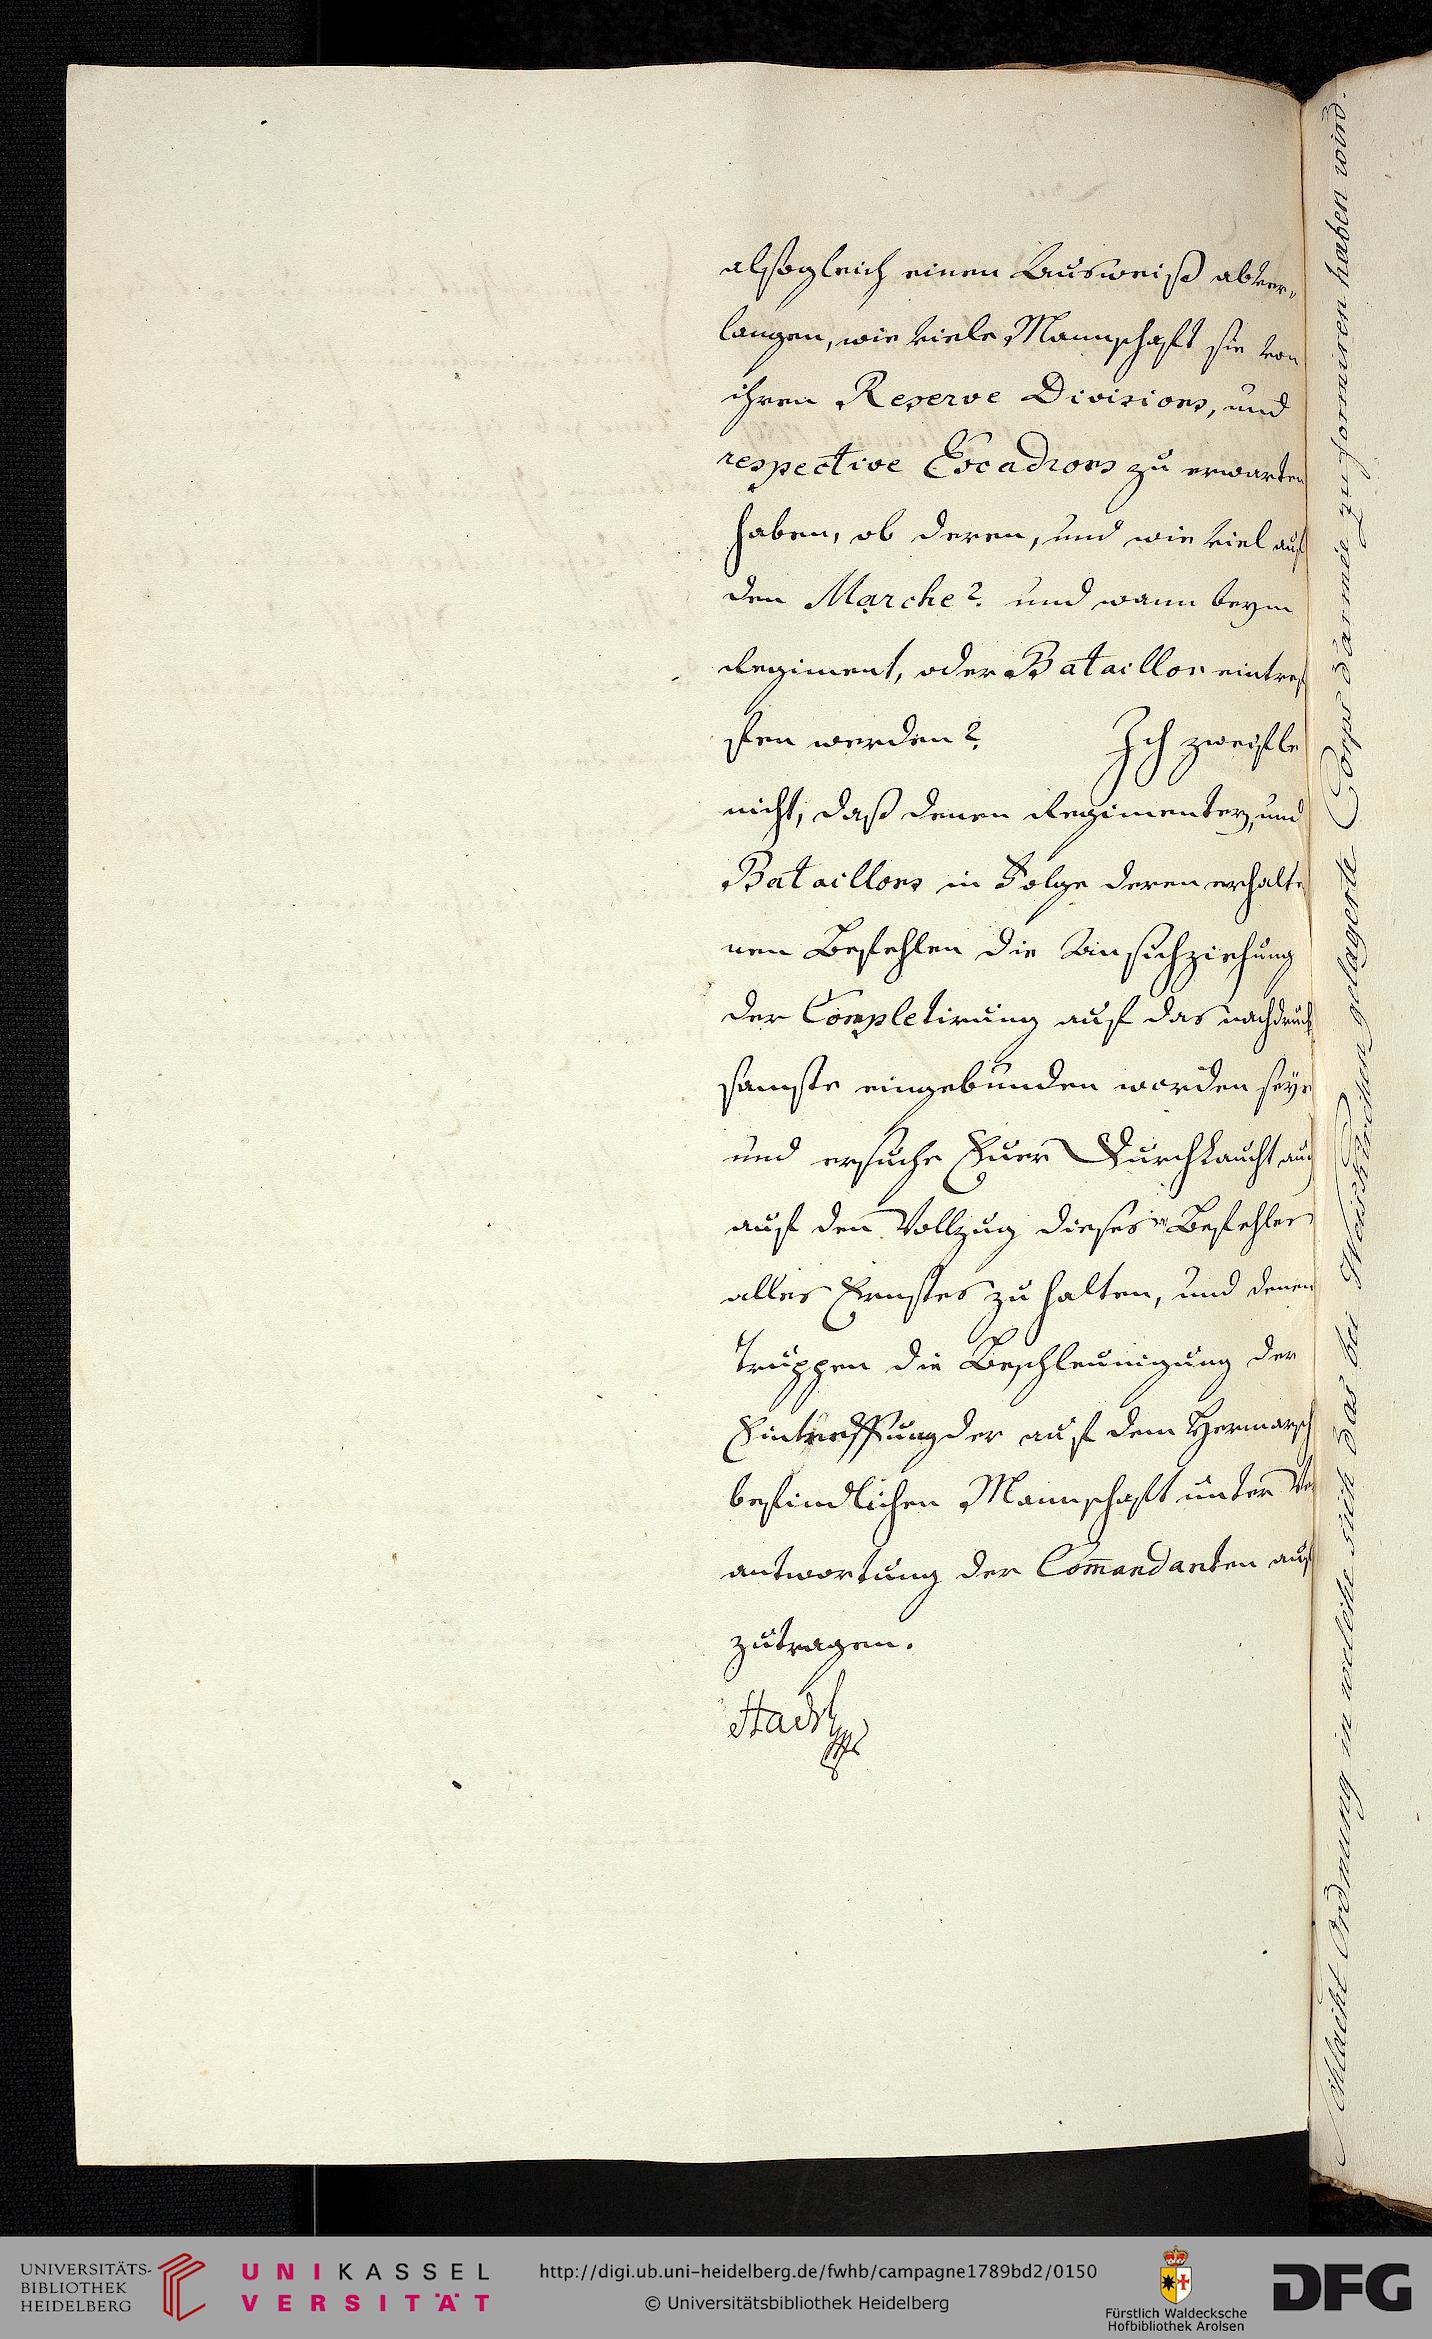 alsogleich einen Ausweiß abver-
langen, wie viele Mannschaft sie von
ihren Reserve Divisions, und
respective Escadrons zu erwarten
haben, ob deren, und wie viel auf
den Marche? und wann beym
Regiment, oder Bataillon eintref
fen werden? Ich zweifle
nicht, daß denen Regimentern, und
Bataillons in Folge deren erhalte
nen Befehlen die Ansichziehung
der Completirung auf das nachdruck
samste eingebunden worden seye
und ersuche Euer Durchlaucht auch
auf den Vollzug dieses Befehles
alles Ernstes zu halten, und denen
Truppen die Beschleunigung der
Eintreffung der auf dem Hermarsch
befindlichen Mannschaft unter Ver
antwortung der Com̄andanten auf
zutragen.
Hadik
Schlacht Ordnung in welche sich das bei Weiskirchen gelagerte Corps d'armée zu formiren haben wird.
UNIVERSITÄTS-
BIBLIOTHEK
HEIDELBERG
UNIKASSEL
VERSITÄT
http://digi.ub.uni-heidelberg.de/fwhb/campagne1789bd2/0150
© Universitätsbibliothek Heidelberg
Fürstlich Waldecksche
Hofbibliothek Arolsen
DFG